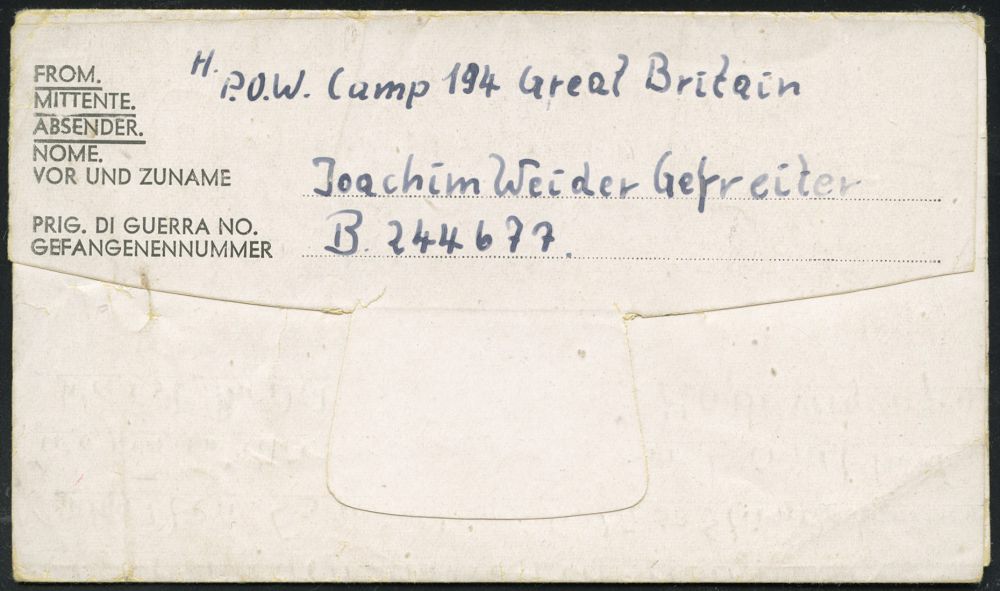 FROM. H. P.O.W. Camp 194 Great Britain
MITTENTE.
ABSENDER.
NOME.
VOR UND ZUNAME Joachim Weider Gefreiter
PRIG. DI GUERRA NO.
GEFANGENENNUMMER B. 244677.